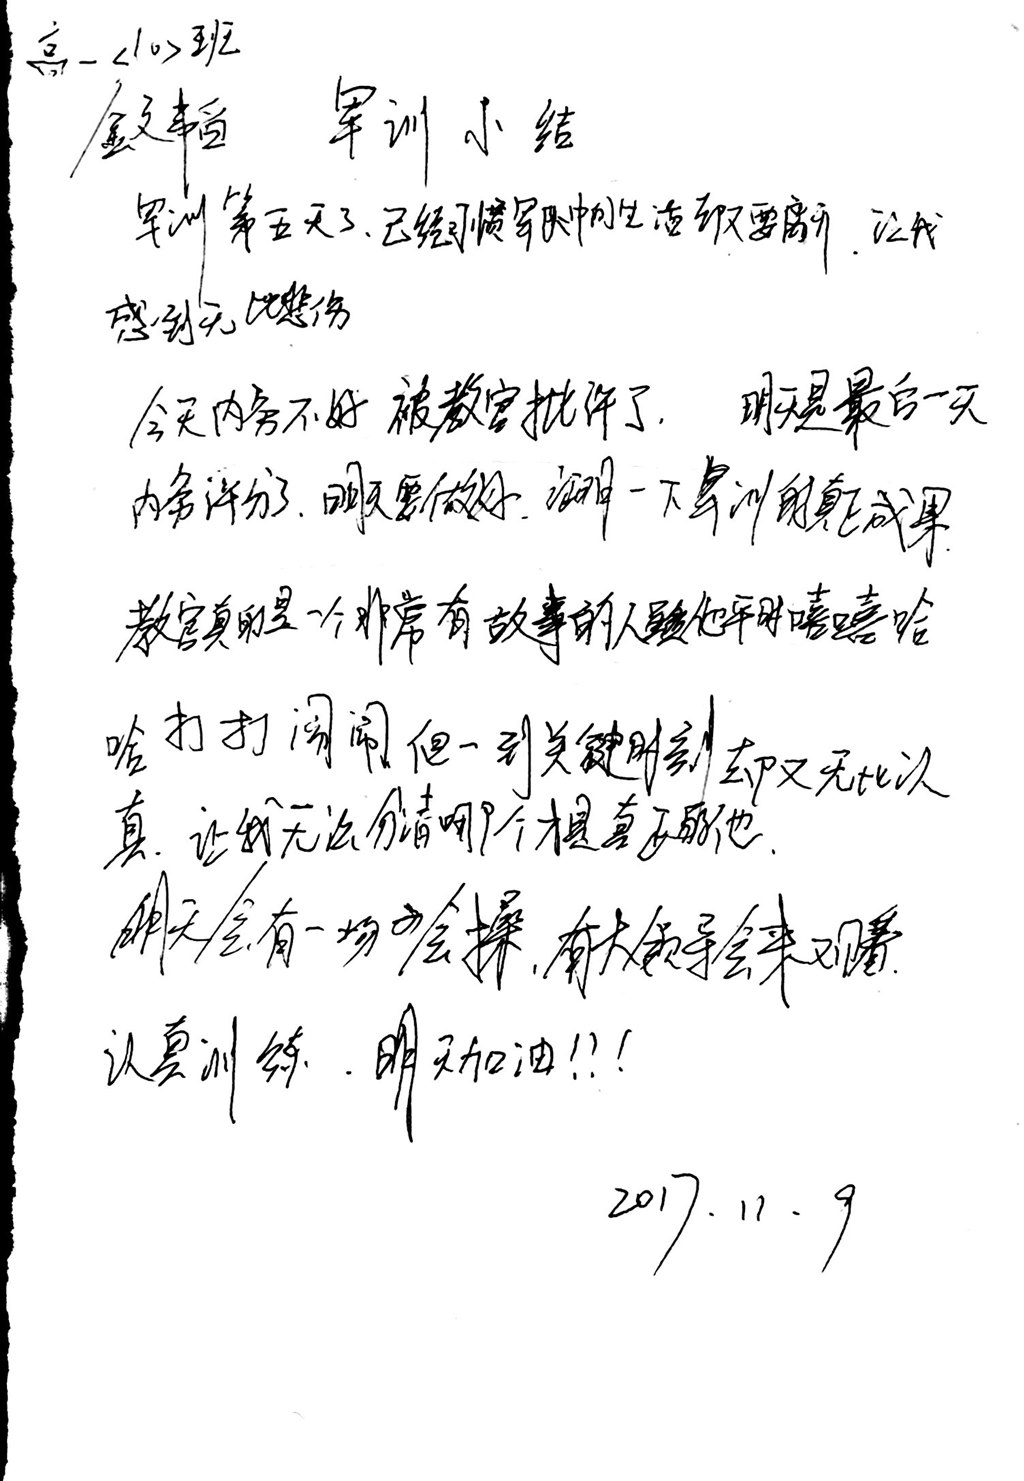 高一<10>班
金文韬 军训小结
军训第五天了、已经习惯军队中的生活却又要离开.让我
感到无比悲伤
今天内务不好 被教官批评了. 明天是最后一天
内务评分了.明天要做好.证明一下军训的真正成果.
教官真的是一个非常有故事的人虽他平时嘻嘻哈
哈打打闹闹但一到关键时刻却又无比认
真.让我无法分清哪个才是真正的他.
明天会有一场会操,有大领导会来观看.
认真训练.明天加油!!!
2017.11.9